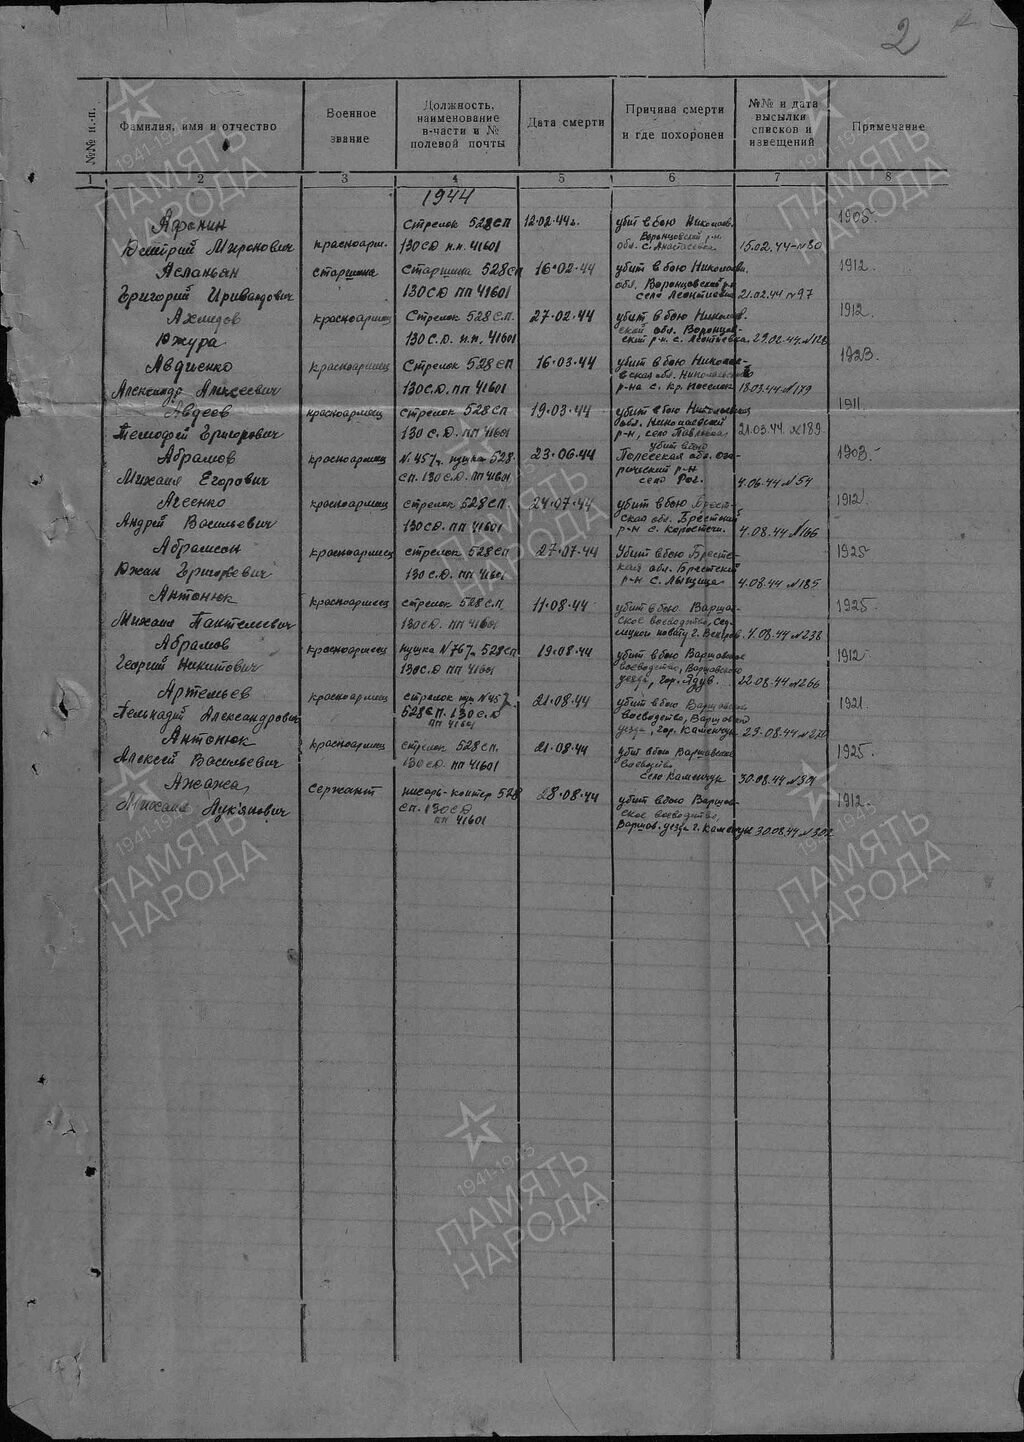 2
№№ п.-п.
Фамилия, имя и отчество
Военное
звание
Должность,
наименование
в-части и №
полевой почты
Дата смерти
Причина смерти
и где похоронен
№№ и дата
высылки
списков и
извещений
Примечание
1 2 3 4 5 6 7 8
1944
Афонин стрелок 528 СП 12.02.44г. убит в бою Николаев. 1905.
Дмитрий Миронович красноарм. 130 СД п.п. 41601 обл. Воронцовский р-н 15.02.44 - №80
Асланьян старшина Старшина 528 СП 16.02.44 убит в бою Николаев. 1912.
Григорий 130 СД ПП 41601 обл. Воронцовский р-н 21.02.44 №97
Ахмедов красноармеец Стрелок 528 С.П. 27.02.44 убит в бою Николаев. 1912.
Джура 130 С.Д. п.п. 41601 ской обл. Воронцов-
ский р-н. с. 29.02.44. №126
Авдиенко красноармеец Стрелок 528 СП 16.03.44 убит в бою Николаев- 1923.
Александр Алексеевич 130 С.Д. ПП 41601 р-на с. Кр. Поселок 18.03.44 №179
Авдеев красноармеец стрелок 528 СП 19.03.44 убит в бою 1911.
Тимофей Григорович 130 С.Д. ПП 41601 обл. Николаевский
р-н, село 21.03.44. №189
Абрамов красноармеец №. 45 пушка 528 23.06.44 убит в бою 1903.
Михаил Егорович СП. 130 С.Д. ПП 41601 Полесская обл.
село Рог. 4.06.44 №54
Агеенко красноармеец стрелок 528 СП. 24.07.44 убит в бою Брест- 1912
Андрей Васильевич 130 С.Д. ПП 41601 ская обл. Брестский
р-н с. 4.08.44 №166
Абрамсон красноармеец стрелок 528 СП 27.07.44 Убит в бою Брест- 1925
Григорьевич 130 С.Д. ПП 41601 кая обл. Брестский
р-н с. Лыщица 4.08.44 №185
Антонюк красноармеец стрелок 528 С.П. 11.08.44 убит в бою Варша- 1925.
Михаил Пантелеевич 130 С.Д. ПП 41601 ское воеводство,
г. Венгров 4.08.44 №238
Абрамов красноармеец пушка №76 528 СП 19.08.44 убит в бою Варшавское 1912.
Георгий Никитович 130 С.Д ПП 41601 воеводство, Варшавского
уезда, гор. Ядув. 22.08.44 №266
Артемьев красноармеец стрелок №45 21.08.44 убит в бою Варшавское 1921.
Геннадий Александрович 528 СП. 130 С.Д воеводство, Варшавский
ПП 41601 уезд, гор. Каменчук 29.08.44
Антонюк красноармеец стрелок 528 СП. 21.08.44 убит в бою Варшавское 1925.
Алексей Васильевич 130 С.Д. ПП 41601 воеводство
село Каменчук 30.08.44
Ажажа сержант писарь- 528 28.08.44 убит в бою Варшав- 1912.
Михаил Лук'янович СП. 130 СД ское воеводство,
ПП 41601 Варшав. уезда г. Каменчук 30.08.44 №302
1941-1945
ПАМЯТЬ
НАРОДА